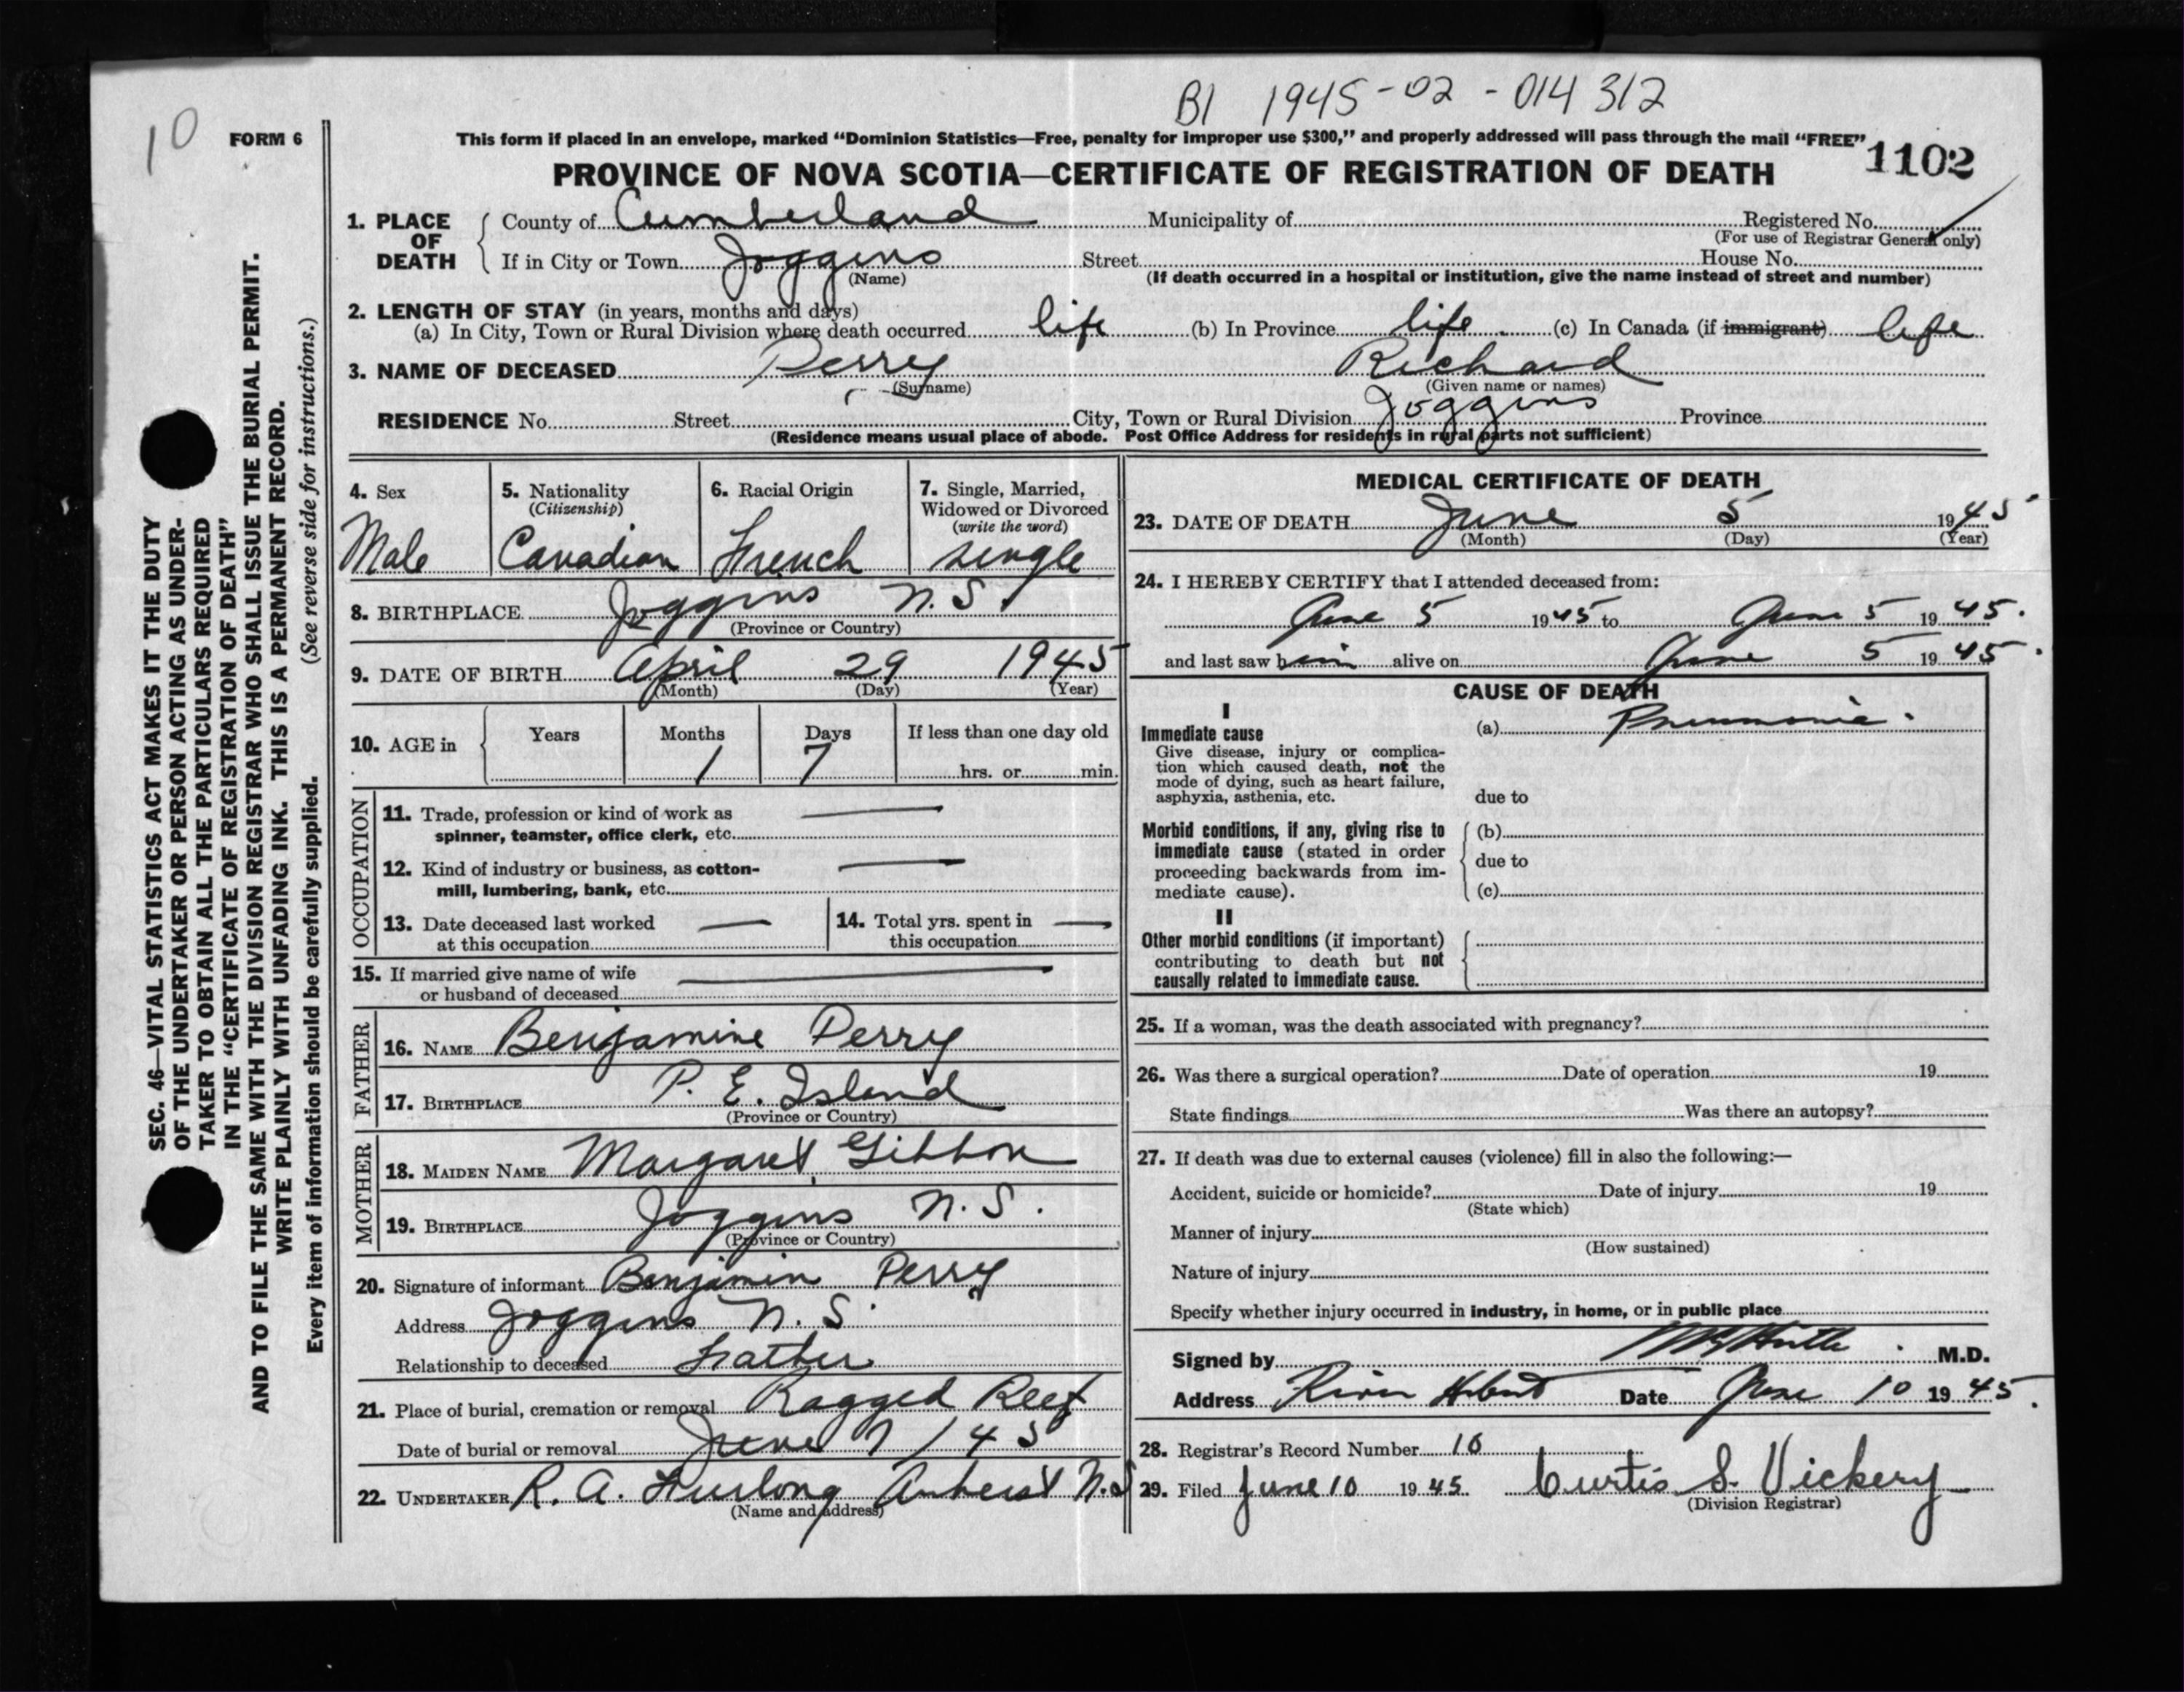 B1 1945-02-014312
10
FORM 6
This form if placed in an envelope, marked “Dominion Statistics—Free, penalty for improper use $300,” and properly addressed will pass through the mail “FREE”
1102
PROVINCE OF NOVA SCOTIA—CERTIFICATE OF REGISTRATION OF DEATH
1. PLACE OF DEATH County of Cumberland Municipality of Registered No.
(For use of Registrar General only)
If in City or Town Joggins Street House No.
(Name) (If death occurred in a hospital or institution, give the name instead of street and number)
2. LENGTH OF STAY (in years, months and days)
(a) In City, Town or Rural Division where death occurred life (b) In Province life. (c) In Canada (if immigrant) life
3. NAME OF DECEASED Perry Richard
(Surname) (Given name or names)
RESIDENCE No. Street City, Town or Rural Division Joggins Province
(Residence means usual place of abode. Post Office Address for residents in rural parts not sufficient)
4. Sex 5. Nationality 6. Racial Origin 7. Single, Married,
(Citizenship) Widowed or Divorced
(write the word)
Male Canadian French single
8. BIRTHPLACE Joggins N.S.
(Province or Country)
9. DATE OF BIRTH April 29 1945
(Month) (Day) (Year)
10. AGE in Years Months Days If less than one day old
1 7 hrs. or min.
OCCUPATION
11. Trade, profession or kind of work as —
spinner, teamster, office clerk, etc.
12. Kind of industry or business, as cotton- —
mill, lumbering, bank, etc.
13. Date deceased last worked — 14. Total yrs. spent in —
at this occupation this occupation
15. If married give name of wife —
or husband of deceased
FATHER
16. NAME Benjamine Perry
17. BIRTHPLACE P. E. Island
(Province or Country)
MOTHER
18. MAIDEN NAME Margaret Gibbon
19. BIRTHPLACE Joggins N.S.
(Province or Country)
20. Signature of informant Benjamin Perry
Address Joggins N.S.
Relationship to deceased Father
21. Place of burial, cremation or removal Ragged Reef
Date of burial or removal June 7/45
22. UNDERTAKER R. A. Furlong Amherst N.S
(Name and address)
MEDICAL CERTIFICATE OF DEATH
23. DATE OF DEATH June 5 1945
(Month) (Day) (Year)
24. I HEREBY CERTIFY that I attended deceased from:
June 5 1945 to June 5 1945.
and last saw him alive on June 5 1945.
CAUSE OF DEATH
I
Immediate cause (a) Pneumonia.
Give disease, injury or complica-
tion which caused death, not the
mode of dying, such as heart failure,
asphyxia, asthenia, etc. due to
Morbid conditions, if any, giving rise to (b)
immediate cause (stated in order due to
proceeding backwards from im-
mediate cause). (c)
II
Other morbid conditions (if important)
contributing to death but not
causally related to immediate cause.
25. If a woman, was the death associated with pregnancy?
26. Was there a surgical operation? Date of operation 19
State findings Was there an autopsy?
27. If death was due to external causes (violence) fill in also the following:—
Accident, suicide or homicide? Date of injury 19
(State which)
Manner of injury
(How sustained)
Nature of injury
Specify whether injury occurred in industry, in home, or in public place
Signed by M.D.
Address River Hebert Date June 10 1945.
28. Registrar's Record Number 16
29. Filed June 10 1945 Curtis S. Vickery
(Division Registrar)
SEC. 46—VITAL STATISTICS ACT MAKES IT THE DUTY
OF THE UNDERTAKER OR PERSON ACTING AS UNDER-
TAKER TO OBTAIN ALL THE PARTICULARS REQUIRED
IN THE “CERTIFICATE OF REGISTRATION OF DEATH”
AND TO FILE THE SAME WITH THE DIVISION REGISTRAR WHO SHALL ISSUE THE BURIAL PERMIT.
WRITE PLAINLY WITH UNFADING INK. THIS IS A PERMANENT RECORD.
Every item of information should be carefully supplied. (See reverse side for instructions.)